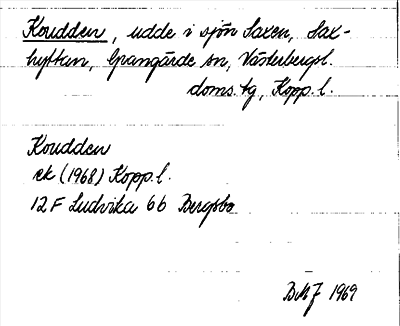 Koudden, udde i sjön Saxen, Sax-
hyttan, Grangärde sn, Västerbergsl.
doms. tg, Kopp. l.
Koudden
ek (1968) Kopp. l.
12 F Ludvika 6 b Bergsbo
BMJ 1969